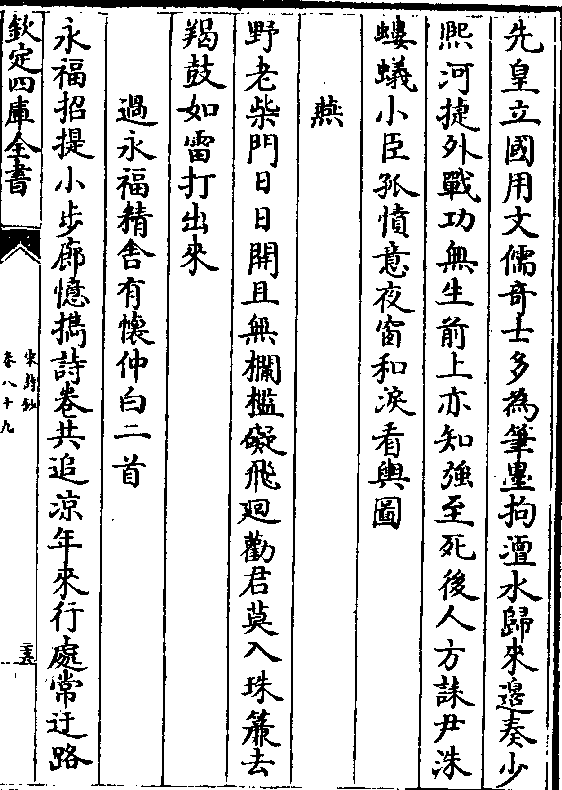 先皇立國用文儒竒士多為筆墨拘澶水歸來邉奏少
熙河捷外戰功無生前上亦知強至死後人方誄尹洙
螻蟻小臣孤憤意夜窗和淚看輿圖
燕
野老柴門日日開且無欄檻礙飛廻勸君莫入珠簾去
羯鼓如雷打出來
過永福精舎有懐仲白二首
永福招提小步廊憶攜詩卷共追凉年來行處常迂路
欽定四庫全書
宋詩鈔
卷八十九